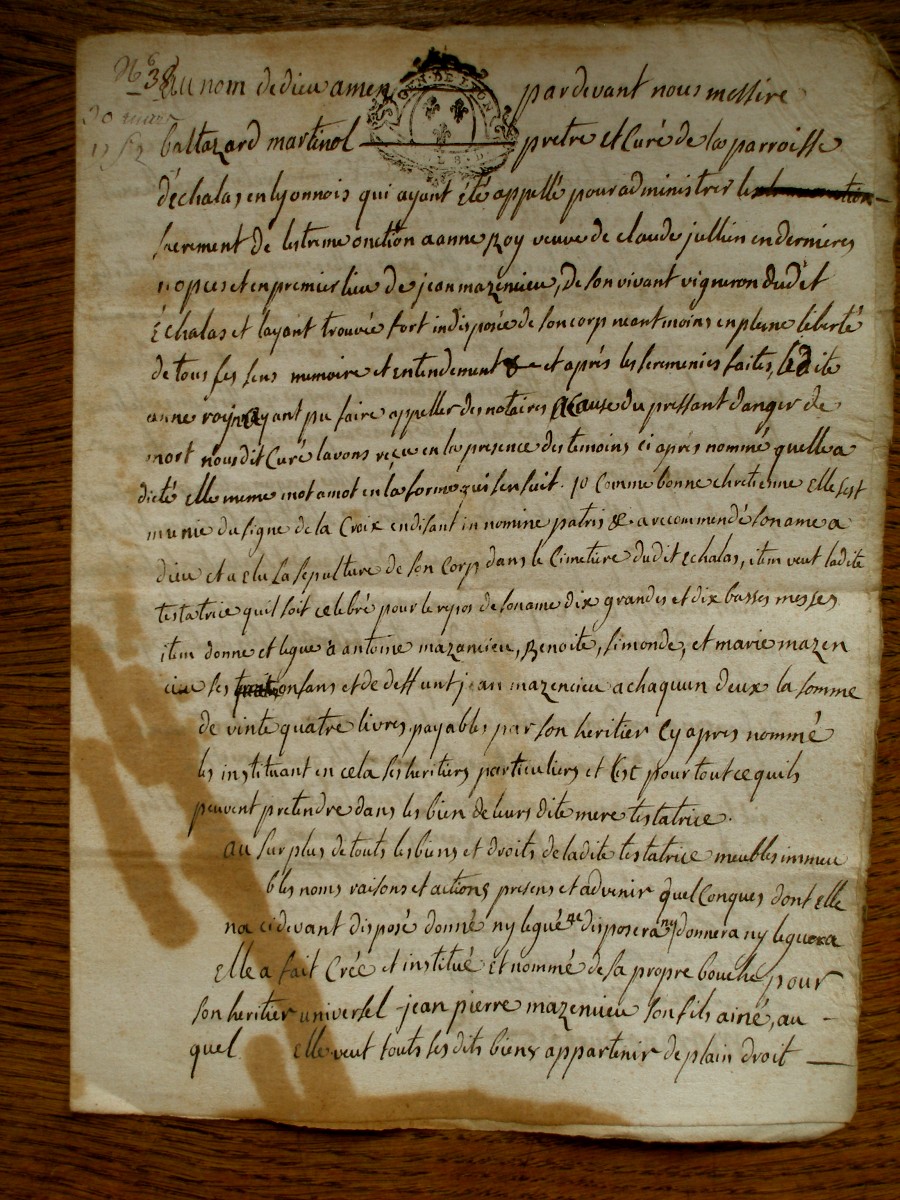 N° 38
Au nom de dieu amen par devant nous messire
GEN · DE LYON
baltazard martinol pretre et Curé de la parroisse
d'échalas en lyonnois qui ayant été appellé pour administrer le
sacrement de lestreme onction a anne Roy veuve de claude jullien en dernieres
nopces et en premier lieu de jean mazencieu, de son vivant vigneron dudt
Échalas et layant trouvée fort indisposée de son corp neantmoins en pleine liberté
de tous ses sens memoire et entendement et après les seremenies faites, la dite
anne roy nayant pu faire appeller des notaires a Cause du pressant danger de
mort nous dit Curé lavons reçue en la presence des temoins ci après nommé quelle a
dicté elle meme mot a mot en la forme qui sensuit. 1o Comme bonne chretienne elle sest
munie du signe de la Croix en disant in nomine patris &. a recommendé son ame a
dieu et a elu la sepulture de son Corp dans le Cimetiere dudit echalas, item veut ladite
testatrice quil soit celebré pour le repos de son ame dix grandes et dix basses messes
item donne et legue a antoine mazencieu, Benoite, simonde, et marie mazen
cieu ses enfans et de deffunt jean mazencieu a chaquun deux la somme
de vinte quatre livres payables par son heritier cy apres nommé
les instituant en cela ses heritiers particuliers et Cest pour tout ce quils
peuvent pretendre dans les bien de leurs dite mere testatrice.
au surplus de touts les biens et droits de ladite testatrice meubles immeu
bles noms raisons et actions presens et advenir quelConques dont elle
na ci devant disposé donné ny legué ne disposera ny donnera ny leguera
Elle a fait Crée et institué et nommé de sa propre bouche pour
son heritier universel jean pierre mazencieu son fils ainé, au
quel elle veut touts ses dits biens appartenir de plain droit